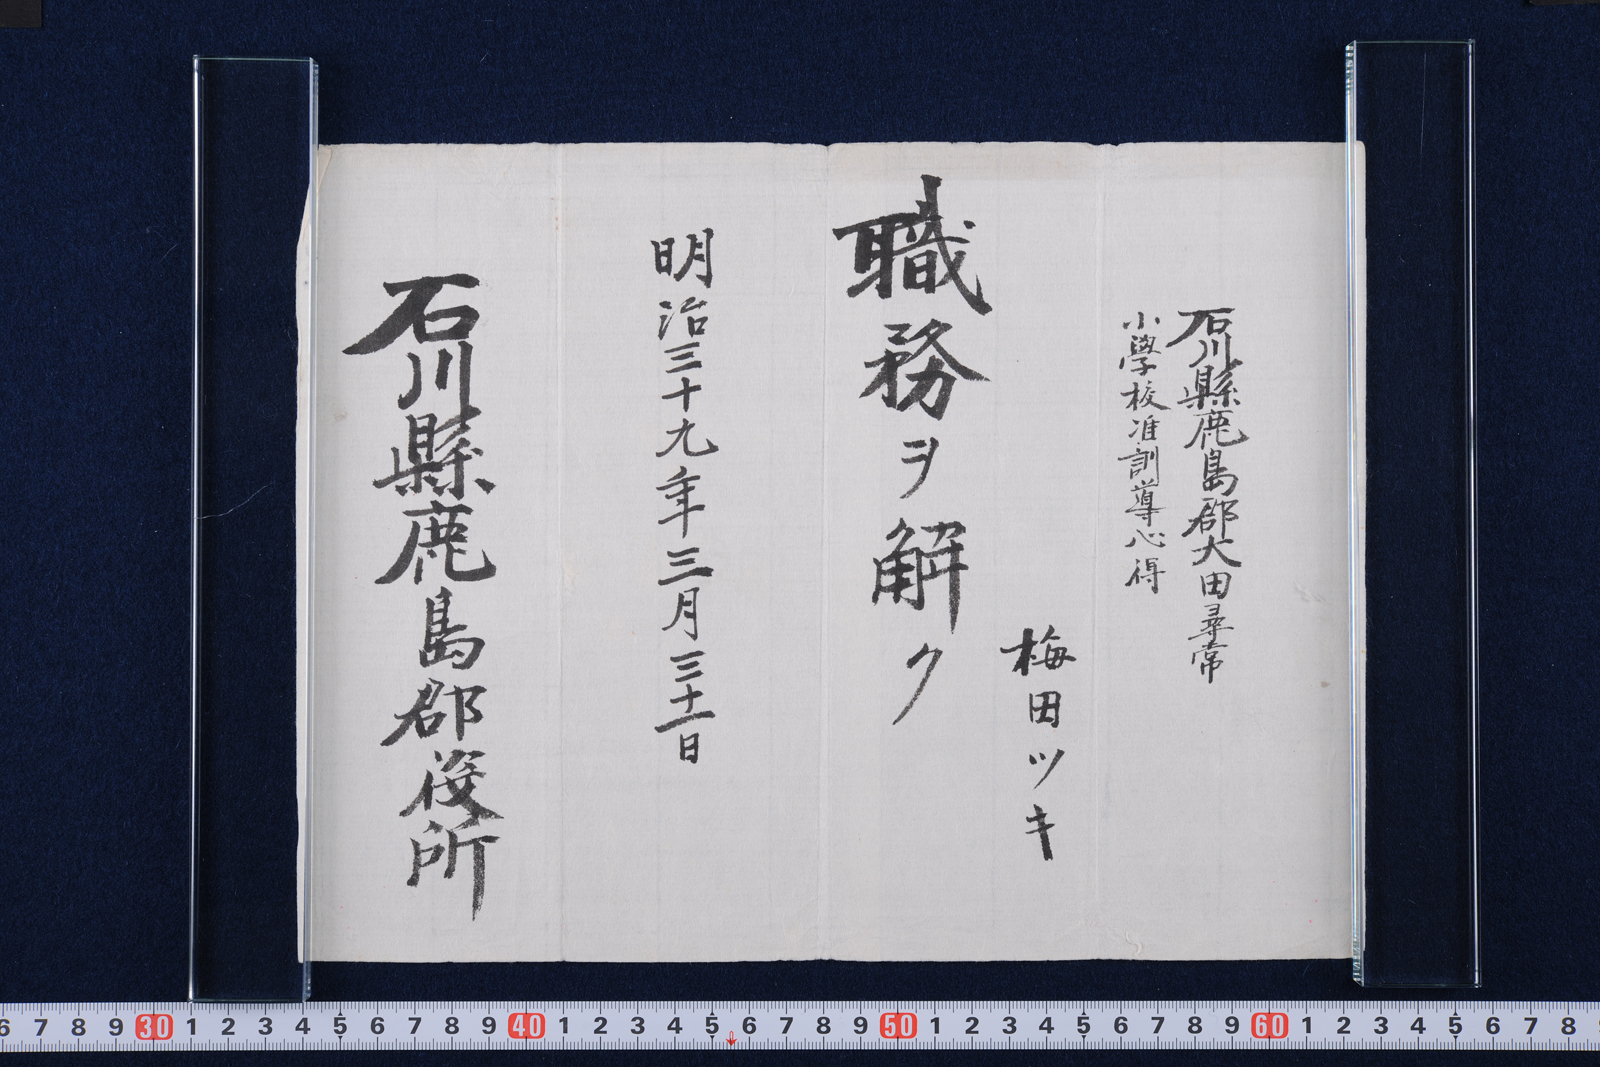 石川縣鹿島郡大田尋常
小學校准訓導心得
梅田ツキ
職務ヲ解ク
明治三十九年三月三十一日
石川縣鹿島郡役所
6 7 8 9 30 1 2 3 4 5 6 7 8 9 40 1 2 3 4 5 6 7 8 9 50 1 2 3 4 5 6 7 8 9 60 1 2 3 4 5 6 7 8